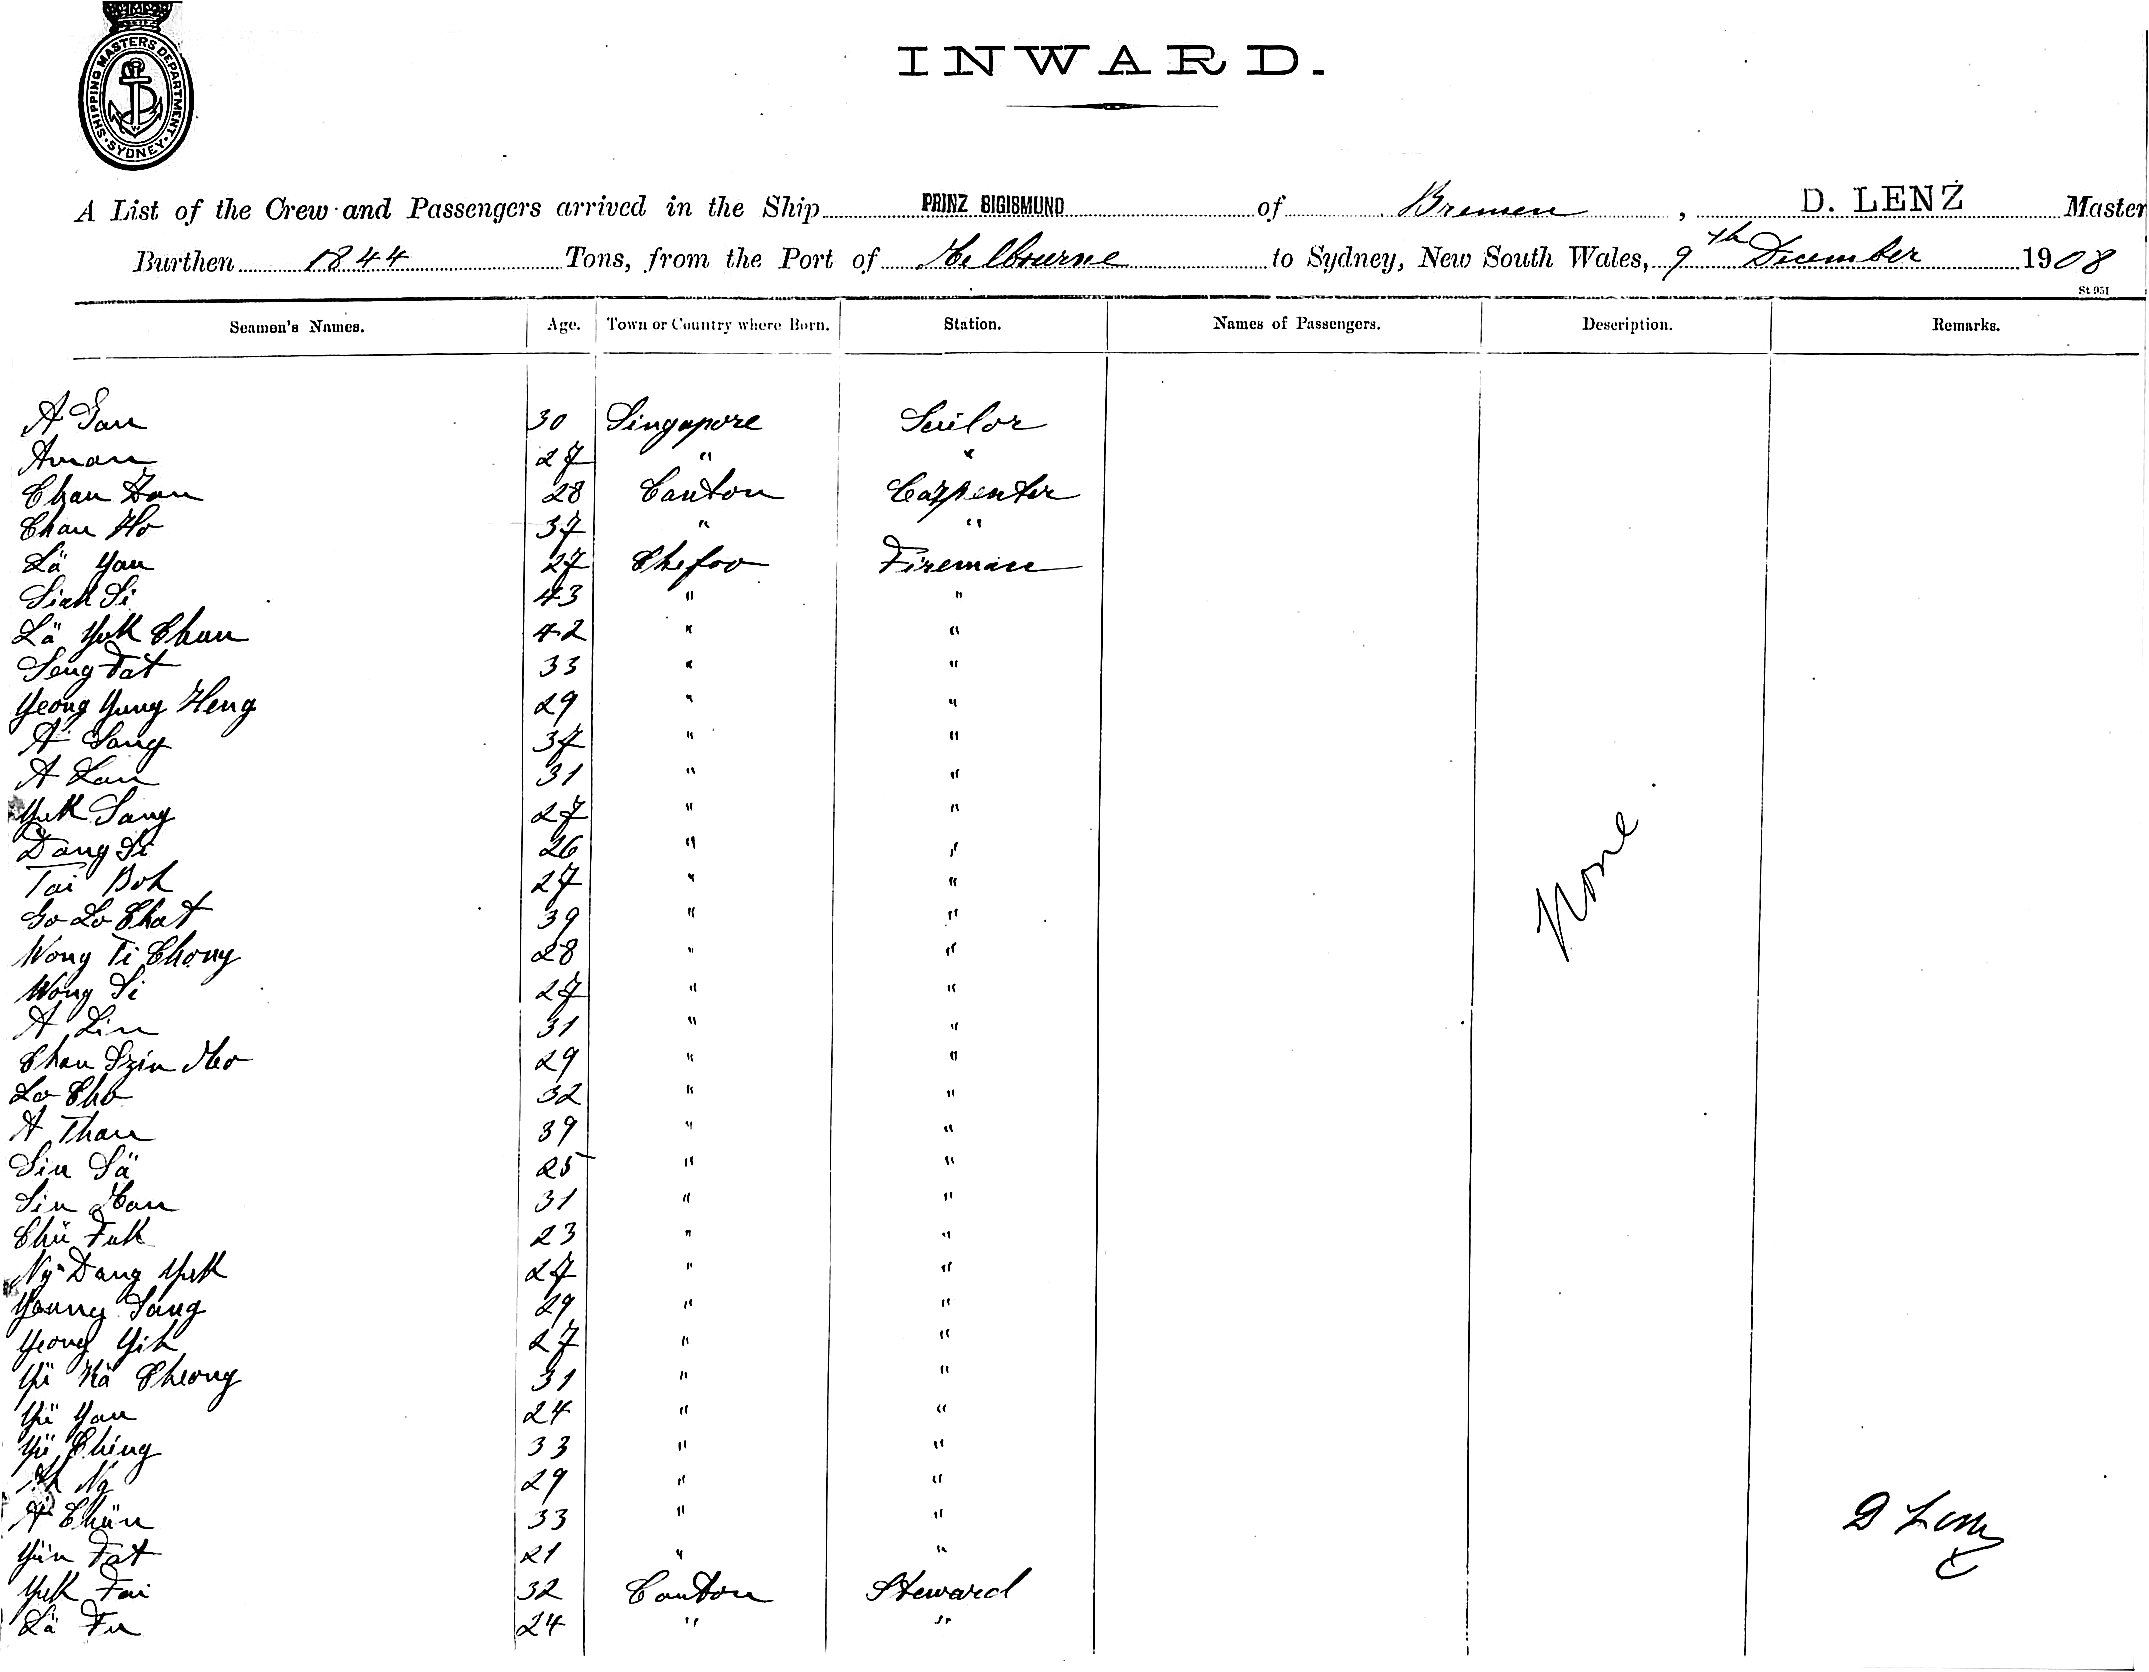 SHIPPING MASTERS DEPARTMENT SYDNEY
INWARD.
A List of the Crew and Passengers arrived in the Ship PRINZ SIGISMUND of Bremen, D. LENZ Master
Burthen 1844 Tons, from the Port of Melbourne to Sydney, New South Wales, 9th December 1908
St 951
Seamen's Names. Age. Town or Country where Born. Station. Names of Passengers. Description. Remarks.
A 30 Singapore Sailor
Aman 27 " "
Chan 28 Canton Carpenter
Chan Ho 37 " "
Lä Yan 27 Chefoo Fireman
Siak Si 43 " "
Lä Yuk Chan 42 " "
Seng Fat 33 " "
Yeong Yung Heng 29 " "
A Sang 37 " "
A Lan 31 " "
Yuk Sang 27 " "
Dang Si 26 " "
Tai Bok 27 " "
So Lo Chat 39 " "
Wong Ti Chong 28 " "
Wong Si 27 " "
A Lin 31 " "
Chan Szin Mo 29 " "
Lo Cho 32 " "
A Than 39 " "
Sin Sä 25 " "
Sin Man 31 " "
Chü Fuk 23 " "
Ng Dang Yuk 27 " "
Young Sang 29 " "
Yeong Yik 27 " "
Yü Kä Cheong 31 " "
Yü Yan 24 " "
Yü Ching 33 " "
Ah Ng 29 " "
A Chün 33 " "
Yün Fat 21 " "
Yuk Fai 32 Canton Steward
Lä Fu 24 " "
None
D Lenz